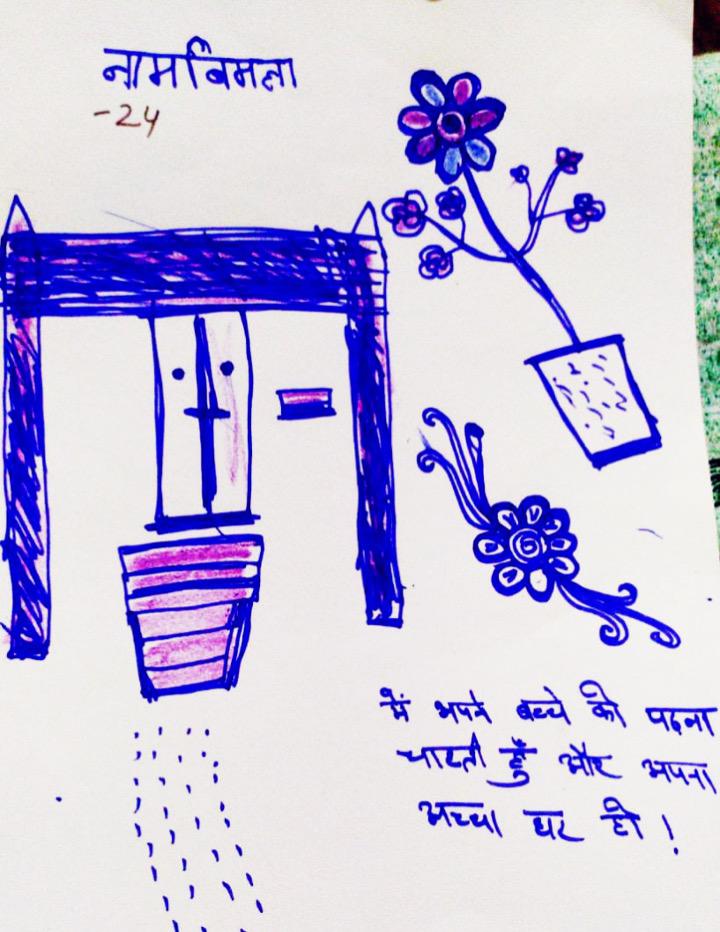 नाम बिमला
-24
में अपने बच्चे को पढ़ना
चाहती हूँ और अपना
अच्चा घर हो !